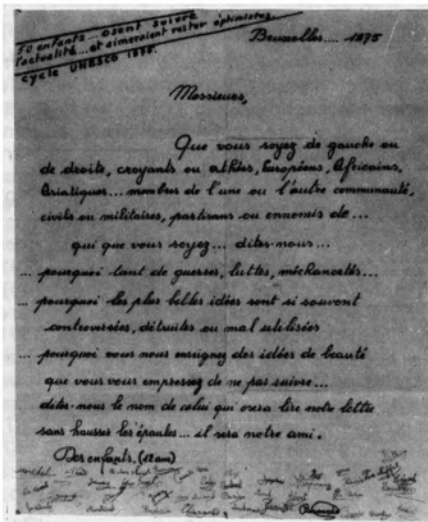 50 enfants... osent suivre
l'actualité... et aimeraient rester optimistes.
cycle UNESCO 1875.
Bruxelles.... 1875
Messieurs,
Que vous soyez de gauche ou
de droite, croyants ou athées, Européens, Africains,
Asiatiques... membres de l'une ou l'autre communauté,
civils ou militaires, partisans ou ennemis de...
qui que vous soyez... dites-nous...
... pourquoi tant de guerres, luttes, méchancetés...
... pourquoi les plus belles idées sont si souvent
controversées, détruites ou mal utilisées
... pourquoi vous nous enseignez des idées de beauté
que vous vous empressez de ne pas suivre...
dites-nous le nom de celui qui osera lire notre lettre
sans hausser les épaules... il sera notre ami.
Des enfants. (12 ans)